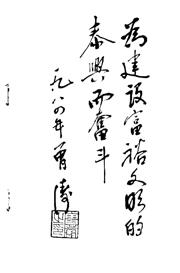 为建设富裕文明的
泰兴而奋斗
一九八四年 曾涛